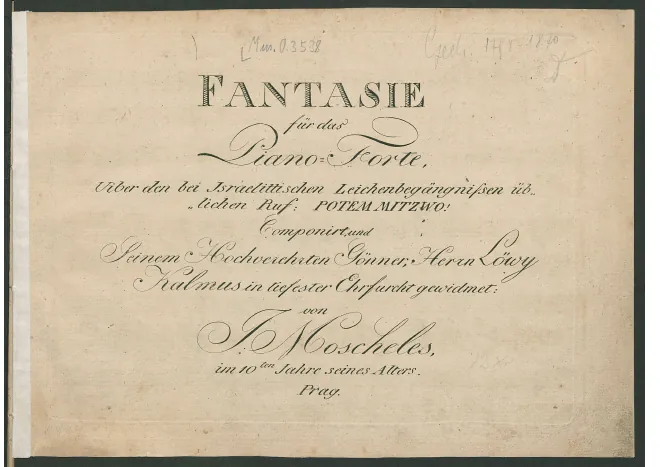 Mus. O. 3538
FANTASIE
für das
Piano=Forte,
Uiber den bei Israelittischen Leichenbegängnißen üb„
„lichen Ruf: POTEM MITZWO!
Componirt, und
Seinem Hochverehrten Gönner, Herrn Löwy
Kalmus in tiefester Ehrfurcht gewidmet:
von
J. Moscheles,
im 10ten Jahre seines Alters.
Prag.